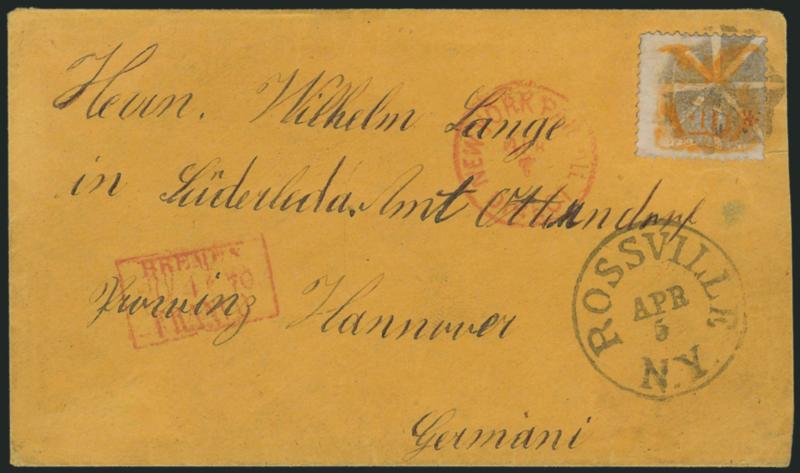 Herrn. Wilhelm Lange
in Süderleda. Amt Otterndorf
Provinz Hannover
Germàni
NEW YORK
10
BREMEN
70
FRANCO
ROSSVILLE
APR
5
N.Y.